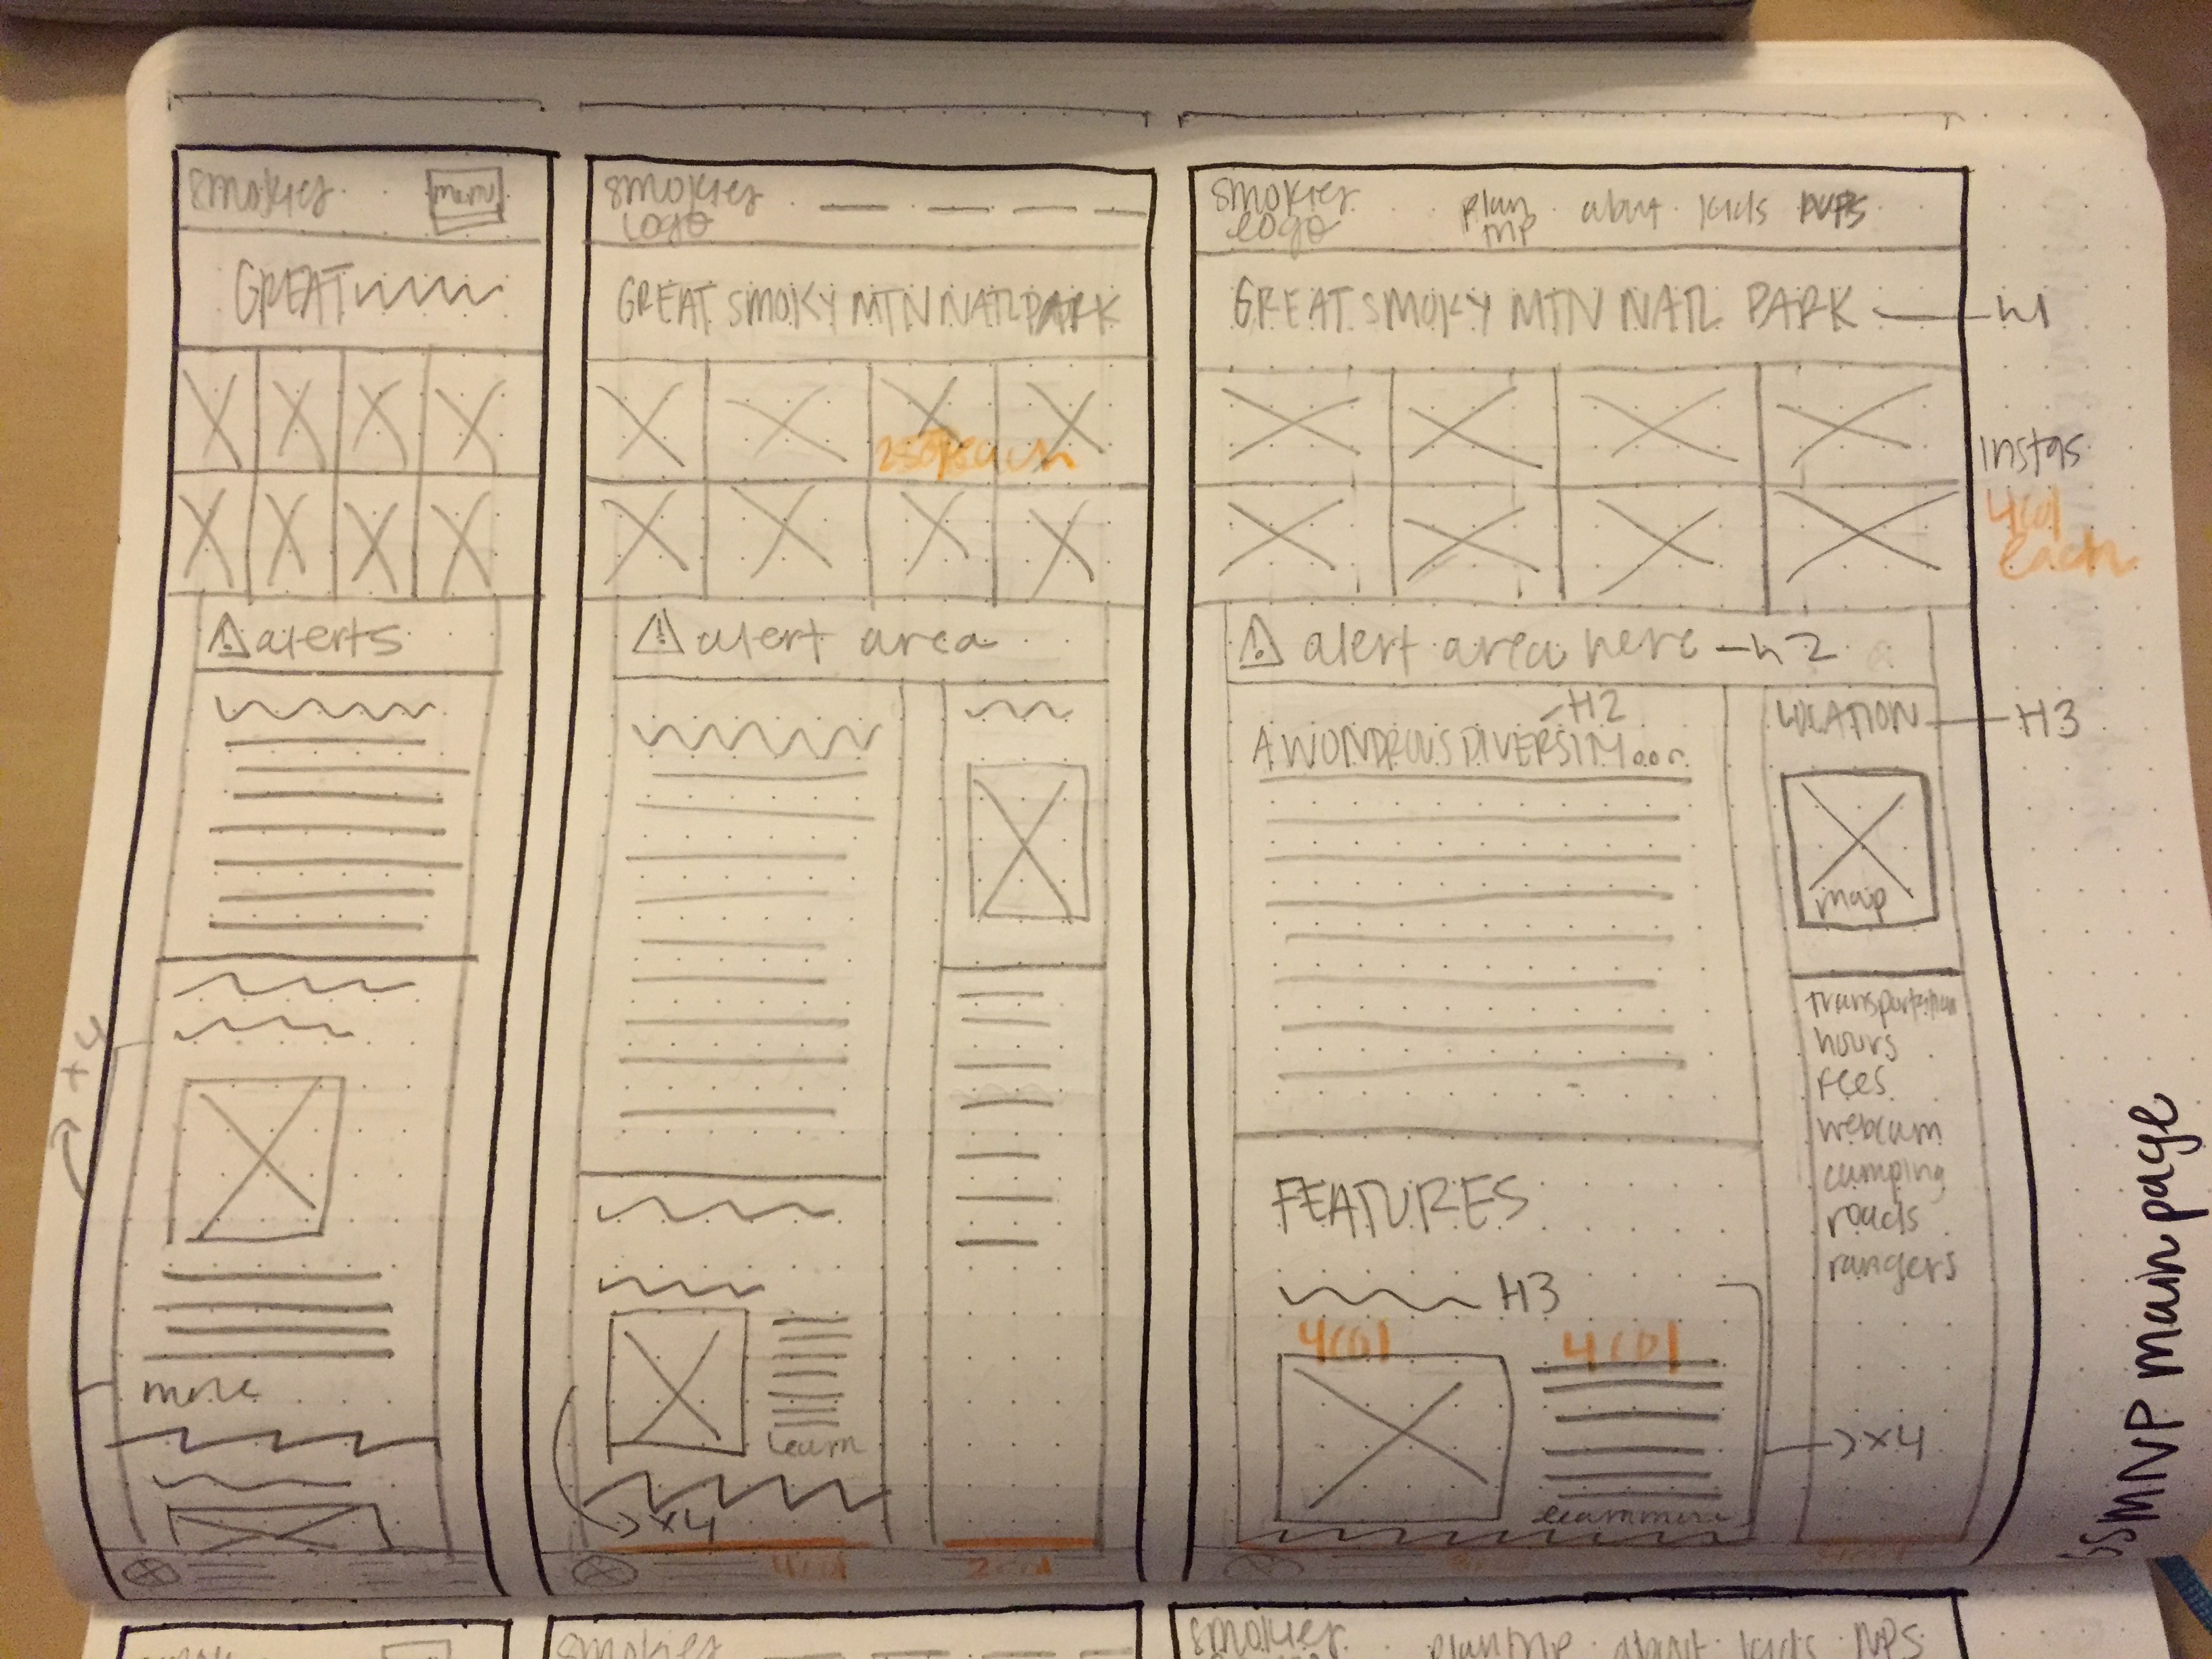 smokies
menu
GREAT
alerts
x4
more
smokies
logo
GREAT SMOKY MTN NATL PARK
alert area
learn
x4
4col
2col
smokies
logo
plan
trip
about
kids
NPS
GREAT SMOKY MTN NATL PARK
h1
instas
4col
each
alert area here - h2
H2
A WONDROUS DIVERSITY...
LOCATION
H3
map
transportation
hours
fees
webcam
camping
roads
rangers
FEATURES
H3
4col
4col
learn more
x4
main page
smokies
smokies
about
kids
NPS